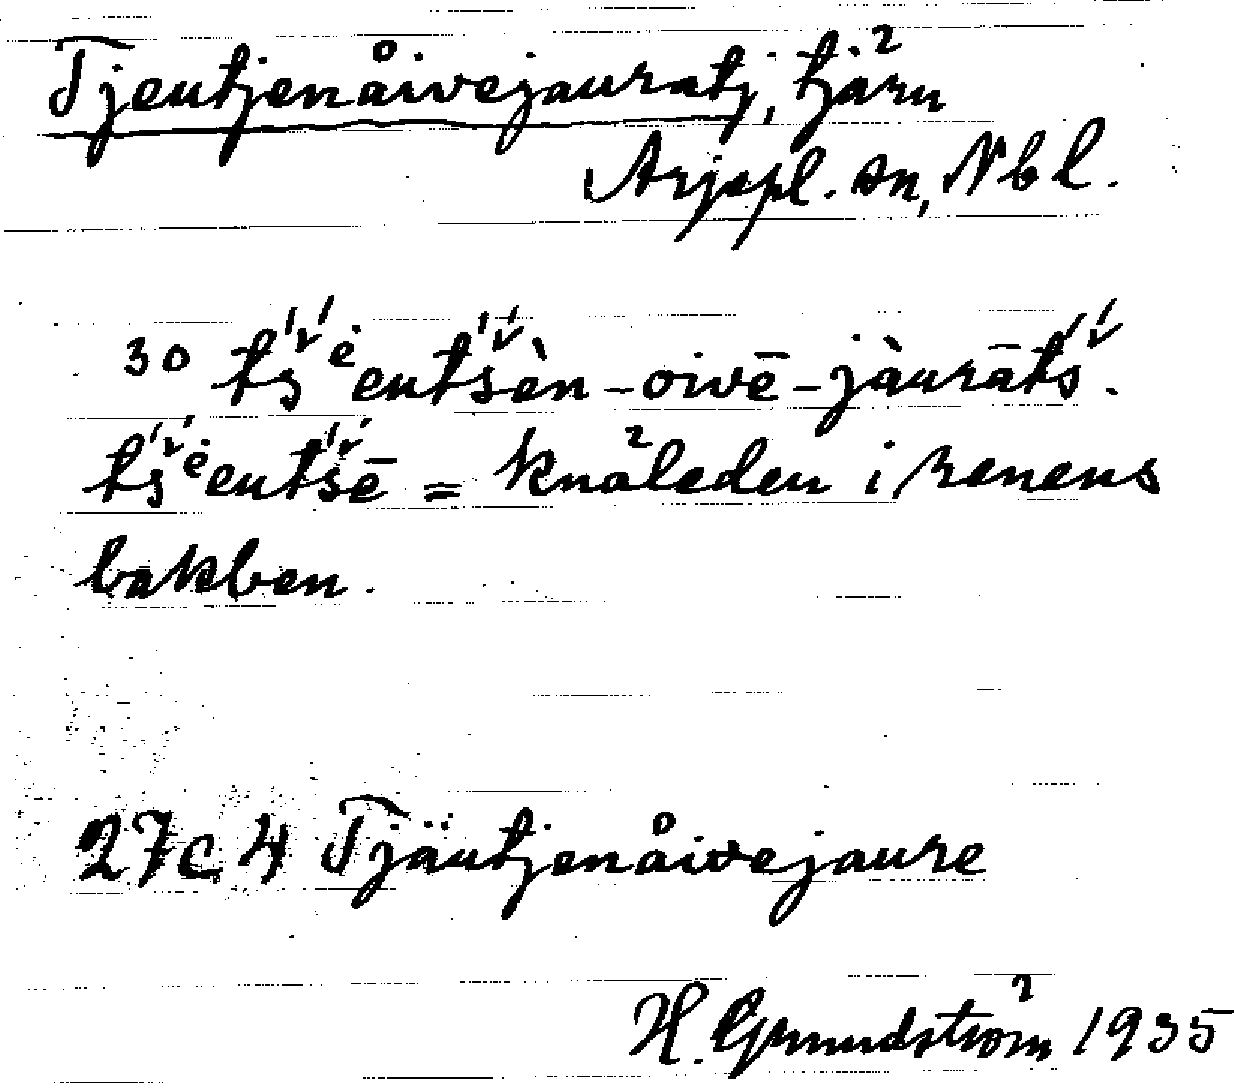 Tjeutjenåivejauratj, tjärn
Arjepl. sn, Nbl.
30 tś̌ėeutś̌èn-oivē-jàurāt́š.
tś̌ėeutś̌ē = knäleden i renens
bakben.
27c4 Tjäutjenåivejaure
H. Grundström 1935